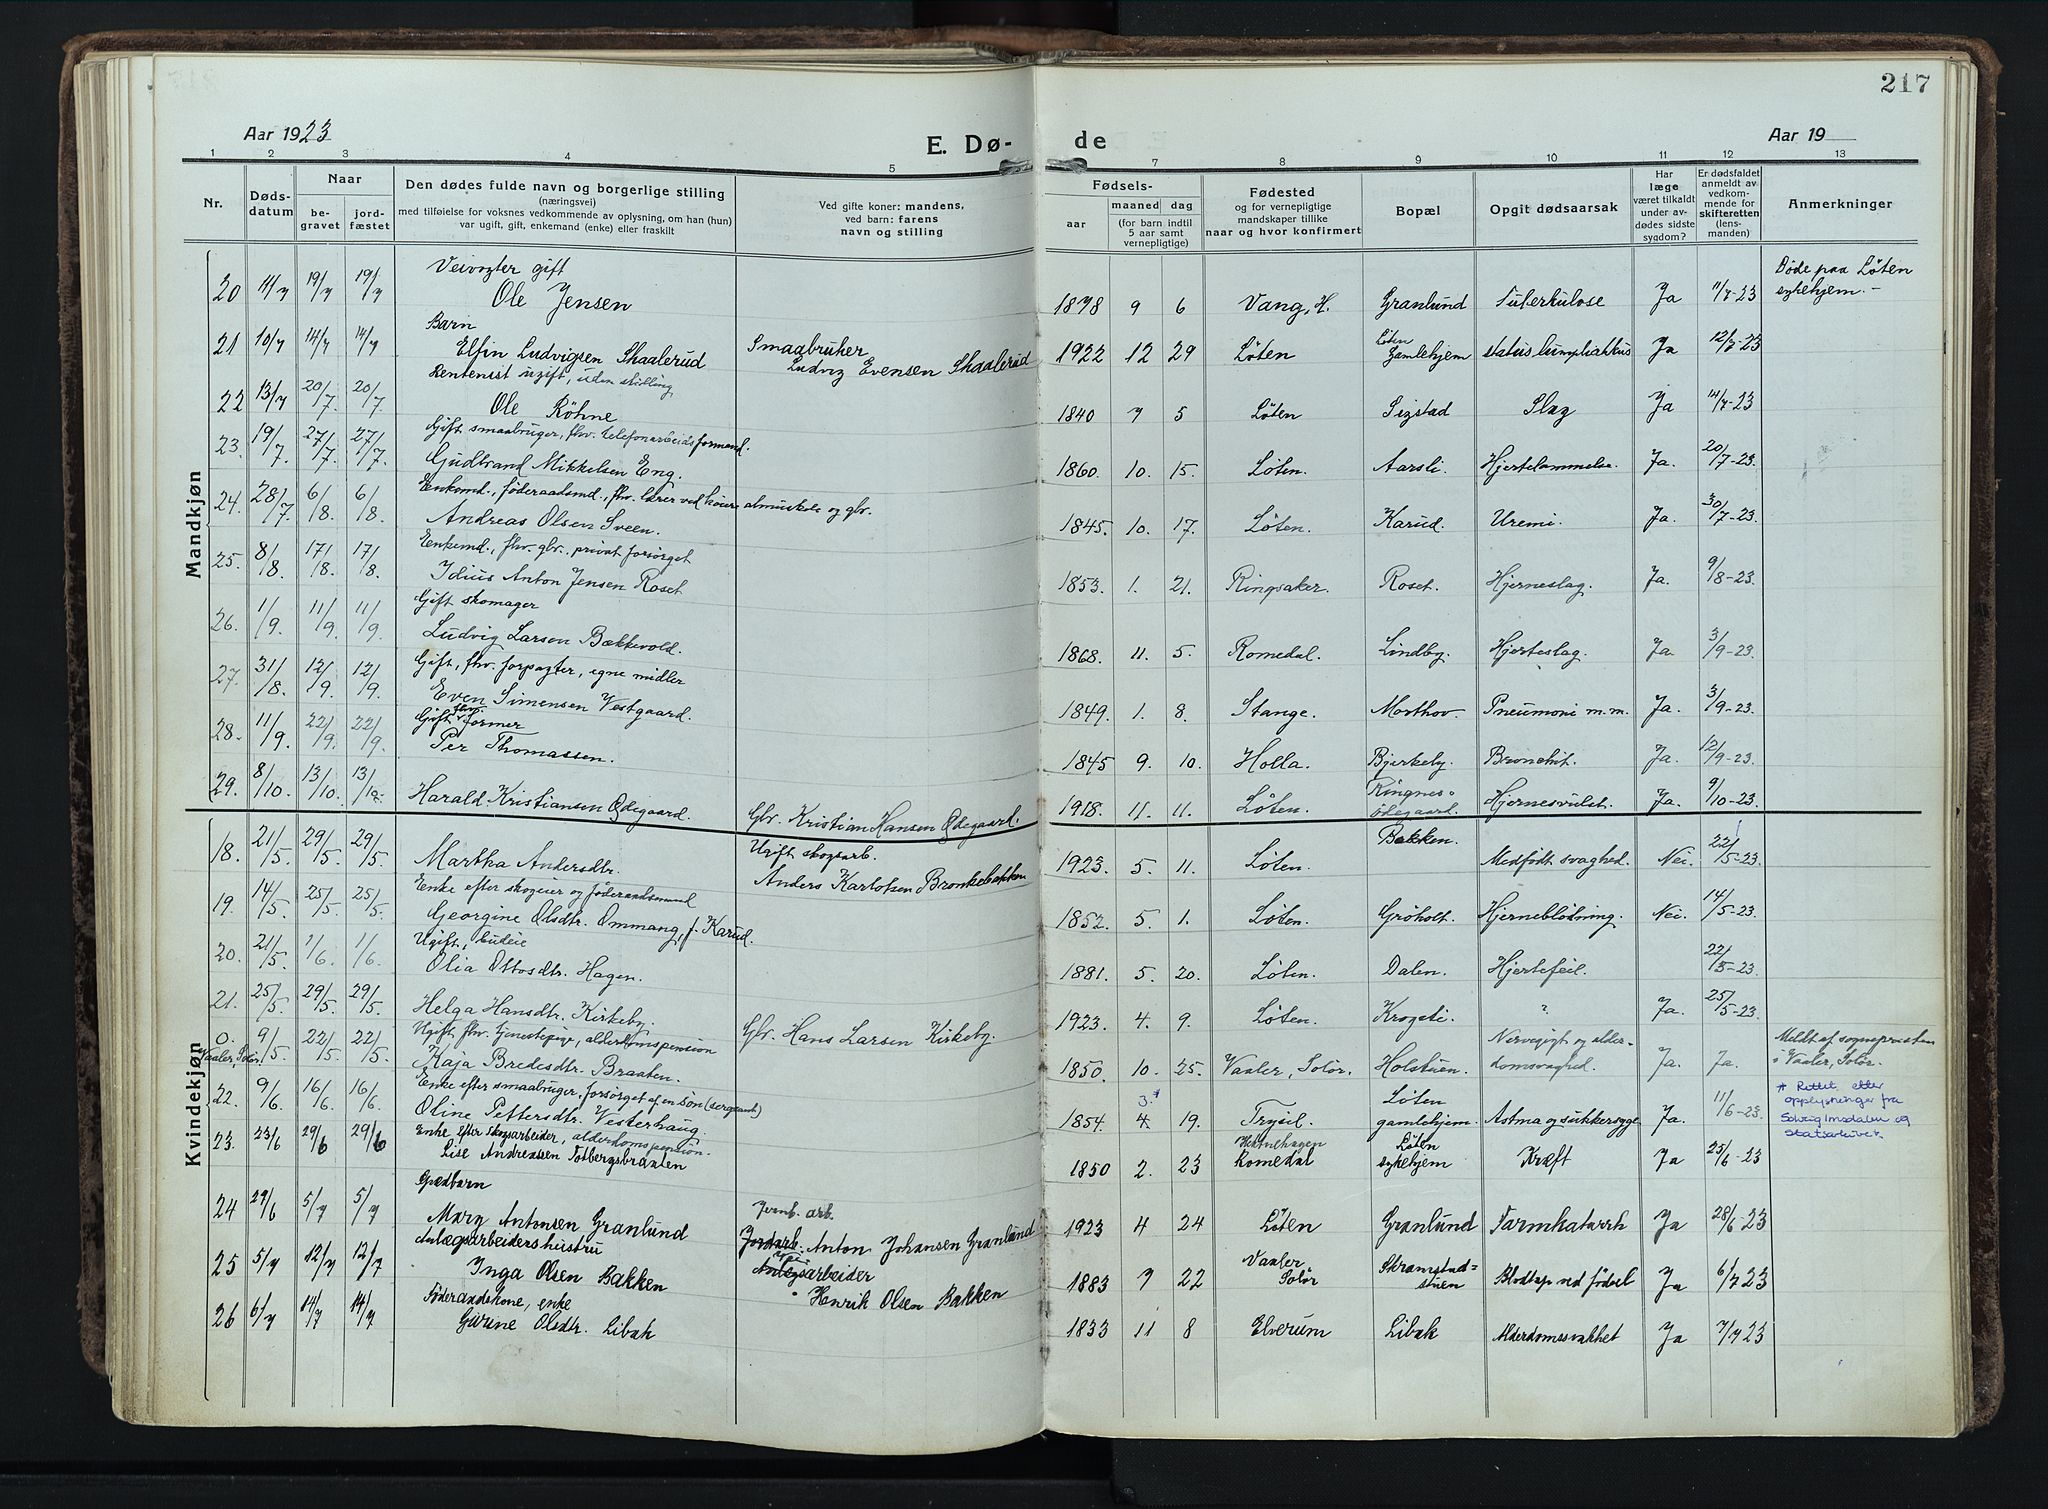 217
Aar 1923
E. Dø-
de
Aar 19
1 2 3 4 5 7 8 9 10 11 12 13
Nr.
Døds-
datum
Naar
be-
gravet
jord-
fæstet
Den dødes fulde navn og borgerlige stilling
(næringsvei)
med tilføielse for voksnes vedkommende av oplysning, om han (hun)
var ugift, gift, enkemand (enke) eller fraskilt
Ved gifte koner: mandens,
ved barn: farens
navn og stilling
Fødsels-
aar
maaned dag
(for barn indtil
5 aar samt
vernepligtige)
Fødested
og for vernepligtige
mandskaper tillike
naar og hvor konfirmert
Bopæl
Opgit dødsaarsak
Har
læge
været tilkaldt
under av-
dødes sidste
sygdom?
Er dødsfaldet
anmeldt av
vedkom-
mende for
skifteretten
(lens-
manden)
Anmerkninger
Mandkjøn
Veivogter gift
20 11/7 19/7 19/7 Ole Jensen 1878 9 6 Vang, H. Granlund Tuberkulose Ja 11/7-23 Døde paa Løten
sykehjem.-
Barn
21 10/7 14/7 14/7 Elfin Ludvigsen Skaalerud Smaabruker
Ludvig Evensen Skaalerud 1922 12 29 Løten Løten
Gamlehjem status lumpliatikus Ja 12/7-23
Rentenist ugift, uden stilling
22 13/7 20/7. 20/7. Ole Röhne 1840 7 5 Løten Sigstad Slag Ja 14/7-23
Gift smaabruger, fhv. telefonarbeidsformand.
23. 19/7. 27/7. 27/7. Gudbrand Mikkelsen Eng. 1860. 10. 15. Løten. Aarsli. Hjertelammelse. Ja. 20/7-23.
Enkemd., føderaadsmd., fhv. lærer ved høiere almuskole og gbr.
24. 28/7. 6/8. 6/8. Andreas Olsen Sveen. 1845. 10. 17. Løten. Karud. Uremi. Ja. 30/7-23.
Enkemd., fhv. gbr., privat forsørget
25. 8/8. 17/8. 17/8. Idius Anton Jensen Roset 1853. 1. 21. Ringsaker. Roset. Hjerneslag. Ja. 9/8-23.
Gift skomager
26. 1/9. 11/9. 11/9. Ludvig Larsen Bækkevold. 1868. 11. 5. Romedal. Lindby. Hjerteslag. Ja. 3/9-23.
Gift, fhv. forpagter, egne midler
27. 31/8. 12/9. 12/9. Even Simensen Vestgaard. 1849. 1. 8. Stange. Morthov. Pneumoni m.m. Ja. 3/9-23.
Gift fhv. former
28. 11/9. 22/9. 22/9. Per Thomassen. 1845 9. 10. Holla. Bjerkeby. Bronchit. Ja. 12/9-23.
29. 8/10. 13/10. 13/10. Harald Kristiansen Ødegaard. Gbr. Kristian Hansen Ødegaard. 1918. 11. 11. Løten. Ringnes-
ødegaard. Hjernesvulst. Ja. 9/10-23.
Kvindekjøn
18. 21/5. 29/5. 29/5. Martha Andersdtr. Ugift skogsarb.
Anders Karlotsen Bronkebakken 1923. 5. 11. Løten. Bakken. Medfødt svaghed. Nei. 22/5-23.
Enke efter skogeier og føderaadsmand
19. 14/5. 25/5. 25/5. Georgine Olsdtr. Ommang, f. Karud. 1852. 5. 1. Løten. Gröholt. Hjerneblødning. Nei. 14/5-23.
Ugift, budeie
20. 21/5. 1/6. 1/6. Olia Ottosdtr. Hagen. 1881. 5. 20. Løten. Dalen. Hjertefeil. 22/5-23.
21. 25/5. 29/5. 29/5. Helga Hansdtr. Kirkeby. Gbr. Hans Larsen Kirkeby. 1923. 4. 9. Løten. Krogsti. ? Ja. 25/5-23.
Ugift, fhv. tjenestepige, alderdomspension
0.
Vaaler, Solør. 9/5. 22/5. 22/5. Kaja Bredesdtr. Braaten. 1850. 10. 25. Vaaler, Solør. Holstuen. Nervegigt og alder-
domsvaghed. Ja. Ja. Meldt af sognepresten
i Vaaler, Solør.
Enke efter smaabruger, forsørget af en søn (sergeant)
22. 9/6. 16/6. 16/6. Oline Pettersdtr. Vesterhaug. 1854. 3.* 4. 19. Trysil. Løten
gamlehjem. Astma og sukkersyge Ja. 11/6-23. * Rettet etter
opplysninger fra
Solveig Imsdalen og
Statsarkivet.
Enke efter skogsarbeider, alderdomspension.
23. 23/6 29/6 29/6 Lise Andreassen Totbergsbraaten 1850 2. 23 Romedal Løten
sykehjem Kræft Ja 25/6-23
Spædbarn
24 27/6 5/7 5/7 Mary Antonsen Granlund Jernb. arb.
Jordarb. Anton Johansen Granlund 1923 4 24 Løten Granlund Tarmkatarrh Ja 28/6-23
Anlægsarbeiders hustru
25 5/7 12/7 12/7 Inga Olsen Bakken Anlægsarbeider
Henrik Olsen Bakken 1883 7 22 Vaaler
Solør Skramstad-
stuen Blodtap ved fødsel Ja 6/7 23
Føderaadskone, enke
26 6/7 14/7 14/7 Gurine Olsdtr. Libak 1833 11 8 Elverum Libak Alderdomssvakhet Ja 7/7 23